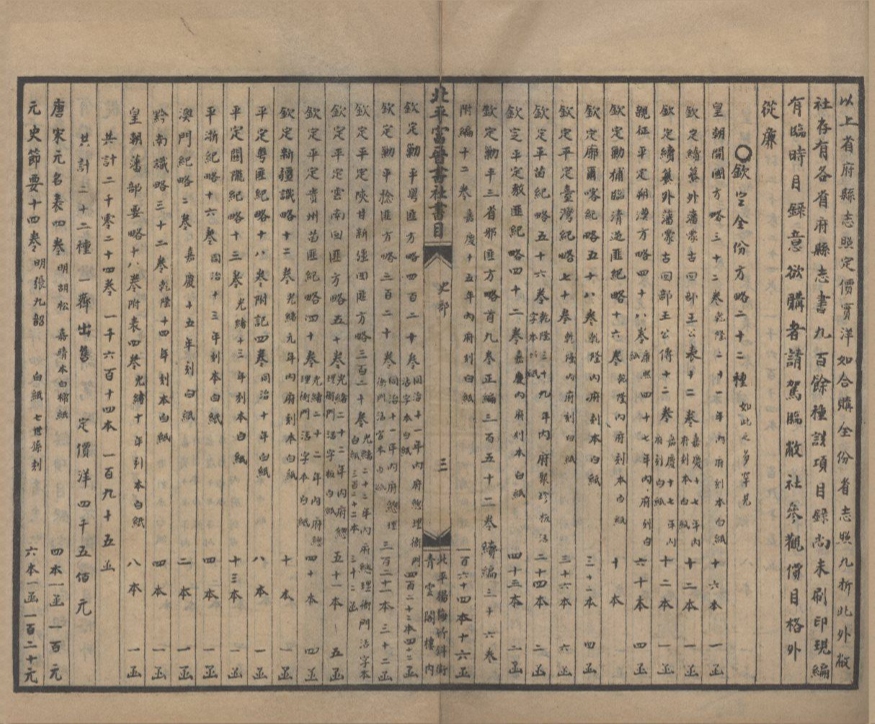 以上省府縣志照定價實洋如合購全份省志照九折此外敝
社存有各省府縣志書九百餘種該項目錄尚未刷印現編
有臨時目錄意欲購者請駕臨敝社參觀價目格外
從廉
○欽定全份方略二十二種 如此之多罕見
皇朝開國方略三十二卷 乾隆二十一年內府刻本白紙 十六本 一函
欽定續纂外藩蒙古回部王公表十二卷 嘉慶十七年內府刻本白紙 十二本 一函
欽定續纂外藩蒙古回部王公傳十二卷 嘉慶十七年內府刻白紙 十二本 一函
親征平定朔漠方略四十八卷 康熙四十七年內府刻白紙 六十本 四函
欽定勦捕臨清逆匪紀略十六卷 乾隆內府刻本白紙 十本 一函
欽定廓爾喀紀略五十八卷 乾隆內府刻本白紙 三十二本 四函
欽定平定臺灣紀略七十卷 乾隆內府刻白紙 三十六本 六函
欽定平苗紀略五十六卷 二十四本 二函
欽定平定教匪紀略四十二卷 嘉慶內府刻本白紙 四十三本 二函
欽定勦平三省邪匪方略首九卷正編三百五十二卷續編三十六卷
附編十二卷 嘉慶十五年內府刻白紙 一百六十四本十六函
北平富晉書社書目 史部 三 北平楊梅竹斜街青雲閣樓內
欽定勦平粵匪方略四百二十卷 同治十一年內府總理衙門活字本白紙 四百二十二本四十二函
欽定勦平捻匪方略三百二十卷 同治十一年內府總理衙門活字本白紙 三百二十一本 三十二函
欽定平定陝甘新疆回匪方略三百二十卷 光緒二十二年內府總理衙門活字本白紙 三百二十二本 三十二函
欽定平定雲南回匪方略五十卷 光緒二十二年內府總理衙門活字板白紙 五十一本 五函
欽定平定貴州苗匪紀略四十卷 光緒二十二年內府總理衙門活字本白紙 四十本 四函
欽定新疆識略十二卷 光緒元年內府刻本白紙 十本 一函
平定粵匪紀略十八卷附記四卷 同治十年白紙 八本 一函
平定關隴紀略十三卷 光緒十三年刻本白紙 十三本 一函
平浙紀略十六卷 同治十三年刻本白紙 四本 一函
澳門紀略二卷 嘉慶十五年刻白紙 二本 一函
黔南識略三十二卷 乾隆十四年刻本白紙 四本 一函
皇朝藩部要略十八卷附表四卷 光緒十年刻本白紙 八本 一函
共計二千零二十四卷 一千六百十四本 一百九十五函
共計二十二種 一齊出售 定價洋四千五佰元
唐宋元名表四卷 明胡松 嘉靖本白棉紙 四本一函 一百元
元史節要十四卷 明張九韶 白紙 六本一函 一百二十元